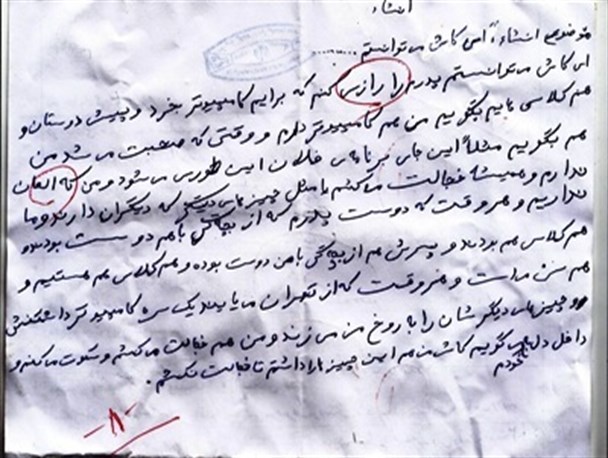 انشاء
موضوع انشاء: ای کاش می توانستم ..........
ای کاش می توانستم پدرم را رازی کنم که برایم کامپیوتر خرد و پیش دوستان و
هم کلاسی هایم بگویم من هم کامپیوتر دارم و وقتی که صحبت می شد من
هم بگویم مثلاً این جای برنامه ی فلان این طوری می شود و من که العان
ندارم و همیشه خجالت می کشم یا مثل چیز های دیگر که دیگران دارند و ما
نداریم و هر وقت که دوست پدرم که از بچگی باهم دوست بودند و
هم کلاس هم بودند و پسرش هم از بچگی با من دوست بوده و هم کلاس هم هستیم و
هم سن ماست و هر وقت که از تهران می آیند یک سره کامپیوتر داشتنش
و چیز های دیگرشان را به روخ من می زند و من هم خجالت می کشم و سکوت می کنم و
داخل دل خودم می گویم کاش من هم این چیز ها را داشتم تا خجالت نکشم.
-۸-